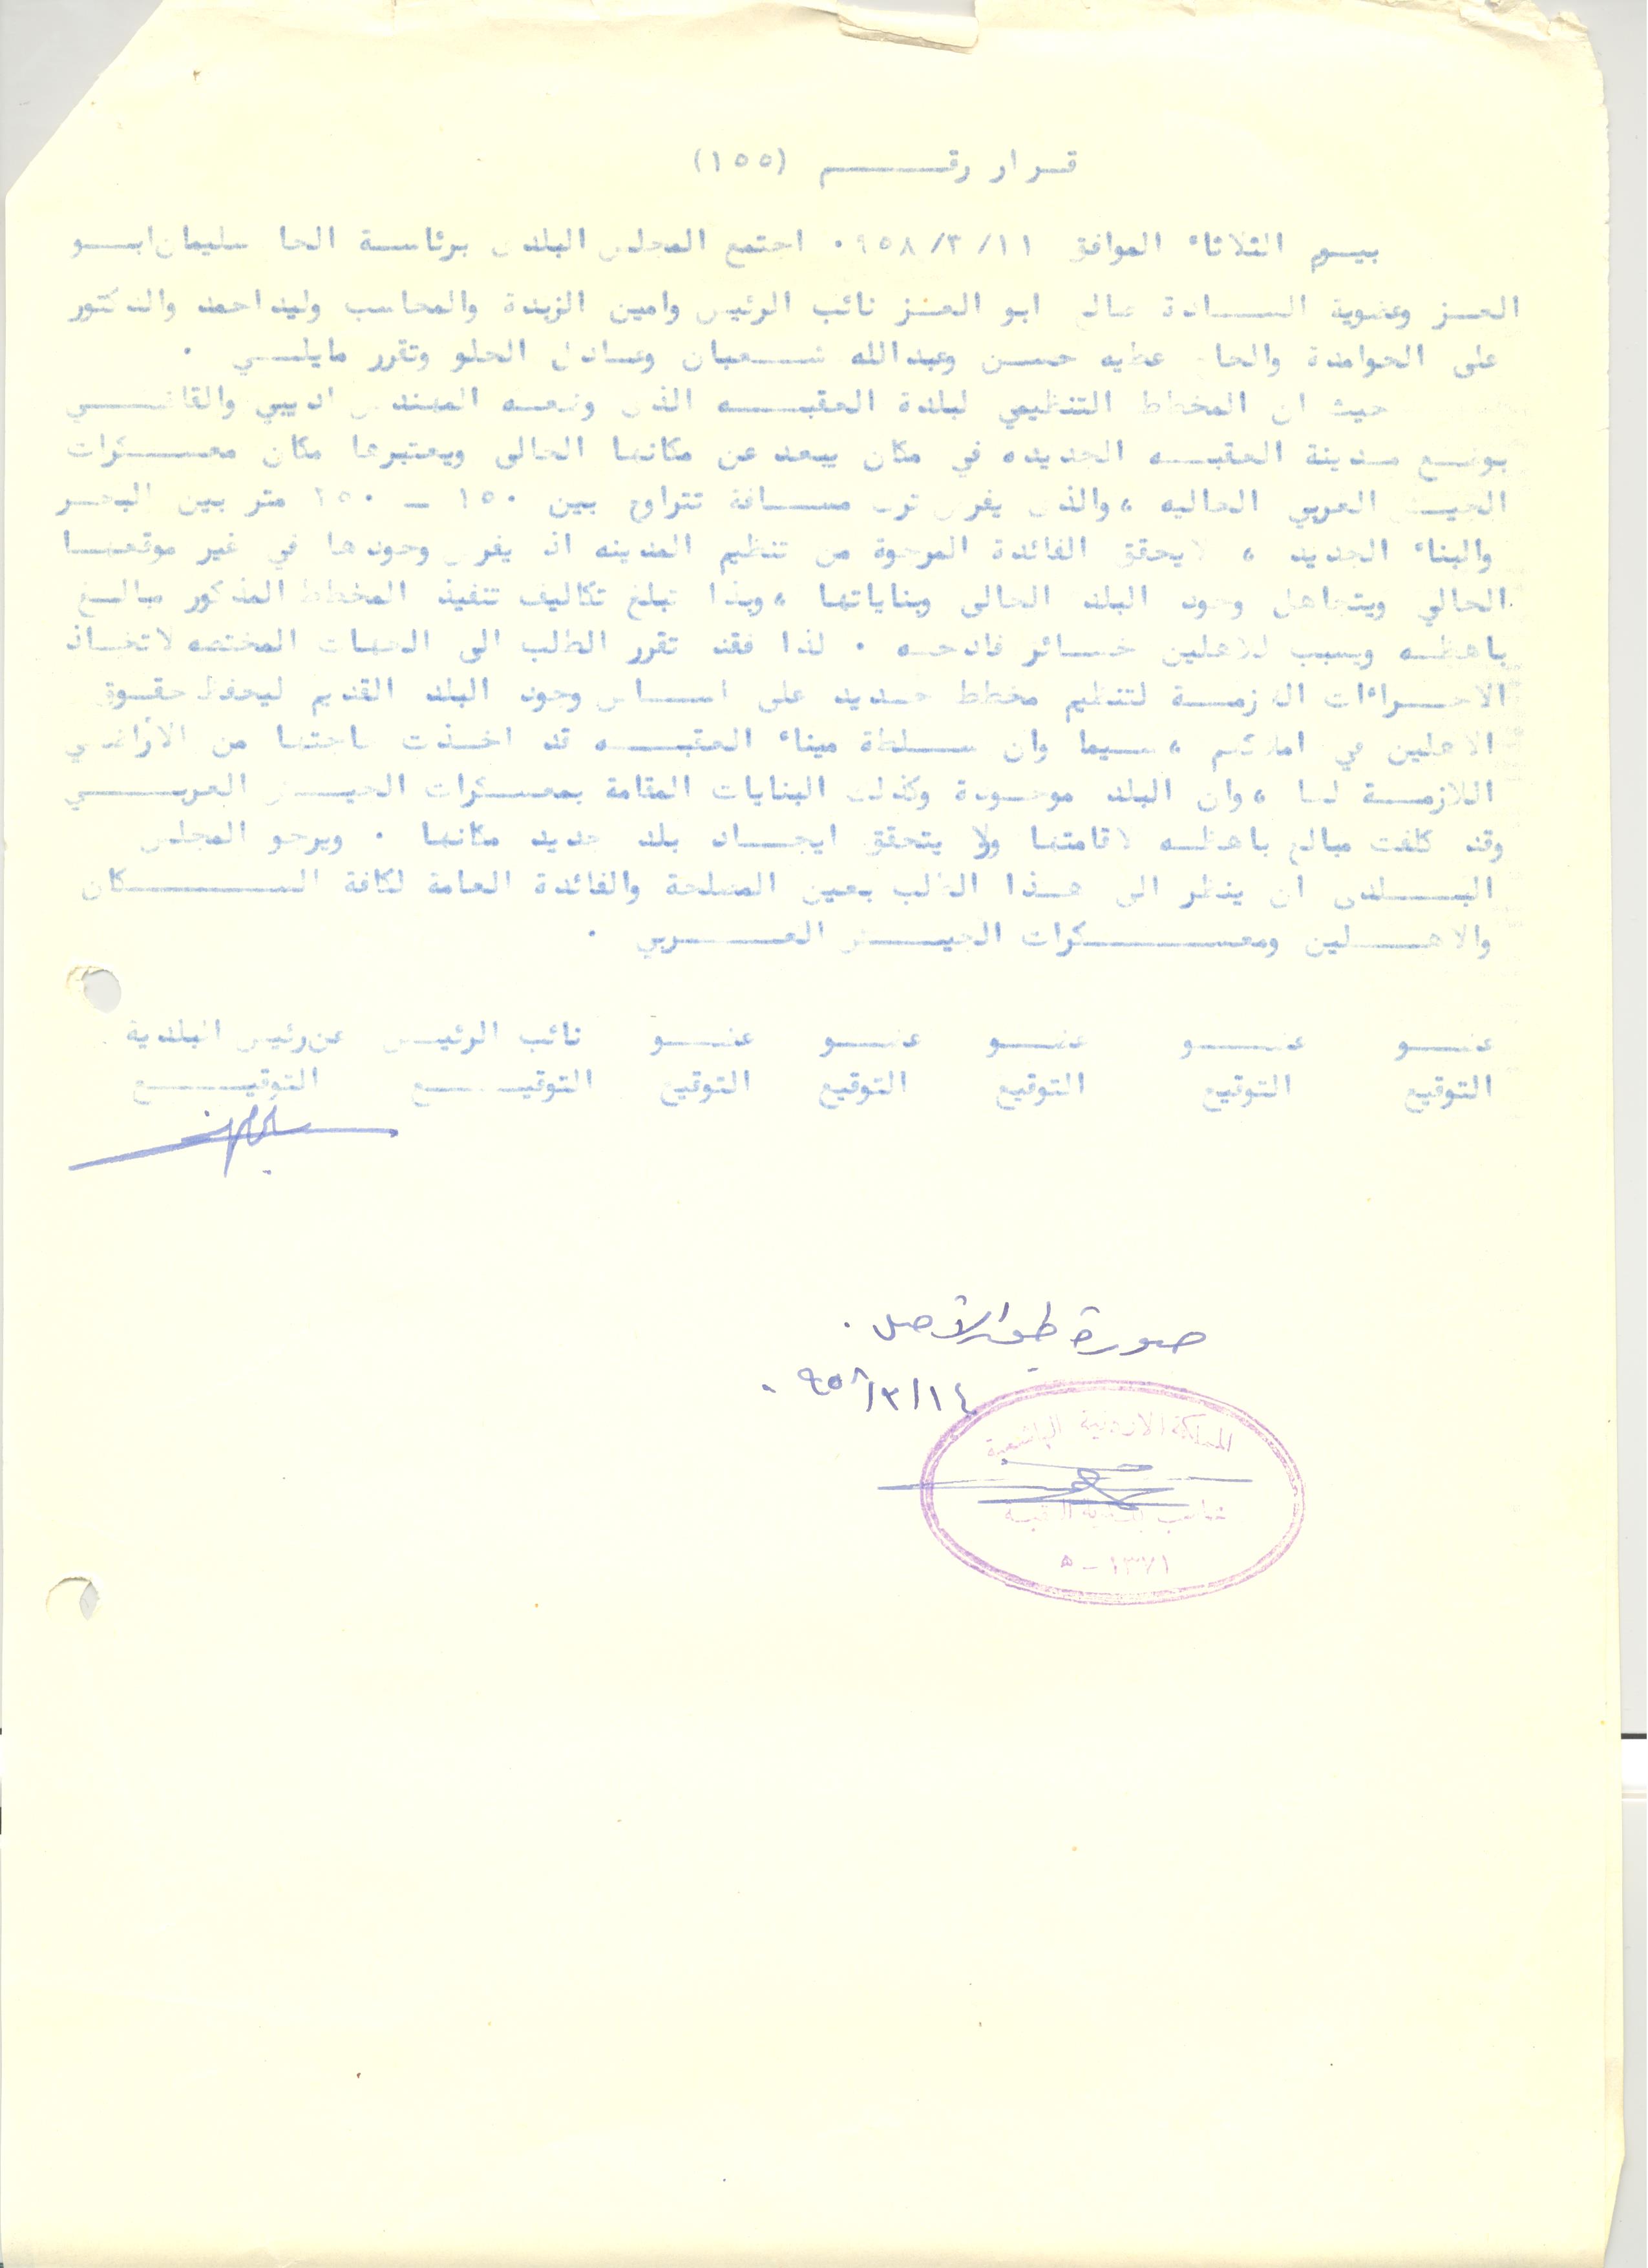 قرار رقم (١٥٥)
بيوم الثلاثاء الموافق ٩٥٨/٣/١١ . اجتمع المجلس البلدى برئاسة الحاج سليمان ابو
العز وعضوية السادة صالح ابو العز نائب الرئيس وامين الزبدة والمحاسب وليد احمد والدكتور
على الحوامدة والحاج عطيه حسن وعبدالله شعبان وعادل الحلو وتقرر مايلي .
حيث ان المخطط التنظيمي لبلدة العقبه الذى وضعه المهندس اديبي والقاضي
بوضع مدينة العقبه الجديده في مكان يبعد عن مكانها الحالى ويعتبرها مكان معسكرات
الجيش العربي الحاليه ، والذى يفرض ترك مسافة تتراوح بين ١٥٠ - ٢٥٠ متر بين البحر
والبناء الجديد ، لايحقق الفائدة المرجوة من تنظيم المدينه اذ يفرض وجودها في غير موقعها
الحالي ويتجاهل وجود البلد الحالى وبناياتها ، وبذا تبلغ تكاليف تنفيذ المخطط المذكور مبالغ
باهظه ويسبب للاهلين خسائر فادحه . لذا فقد تقرر الطلب الى الجهات المختصه لاتخاذ
الاجراءات اللازمة لتنظيم مخطط جديد على اساس وجود البلد القديم ليحفظ حقوق
الاهلين في املاكهم ، سيما وان سلطة ميناء العقبه قد اخذت حاجتها من الاراضي
اللازمة لها ، وان البلد موجودة وكذلك البنايات المقامة بمعسكرات الجيش العربي
وقد كلفت مبالغ باهظه لاقامتها ولا يتحقق ايجاد بلد جديد مكانها . ويرجو المجلس
البلدى ان ينظر الى هذا الطلب بعين المصلحة والفائدة العامة لكافة السكان
والاهلين ومعسكرات الجيش العربي .
عضو عضو عضو عضو عضو نائب الرئيس عن رئيس البلدية
التوقيع التوقيع التوقيع التوقيع التوقيع التوقيع التوقيع
صورة طبق الاصل .
٩٥٨/٣/١٤ .
المملكة الاردنية الهاشمية
بلدية العقبة
١٣٧١ - ه